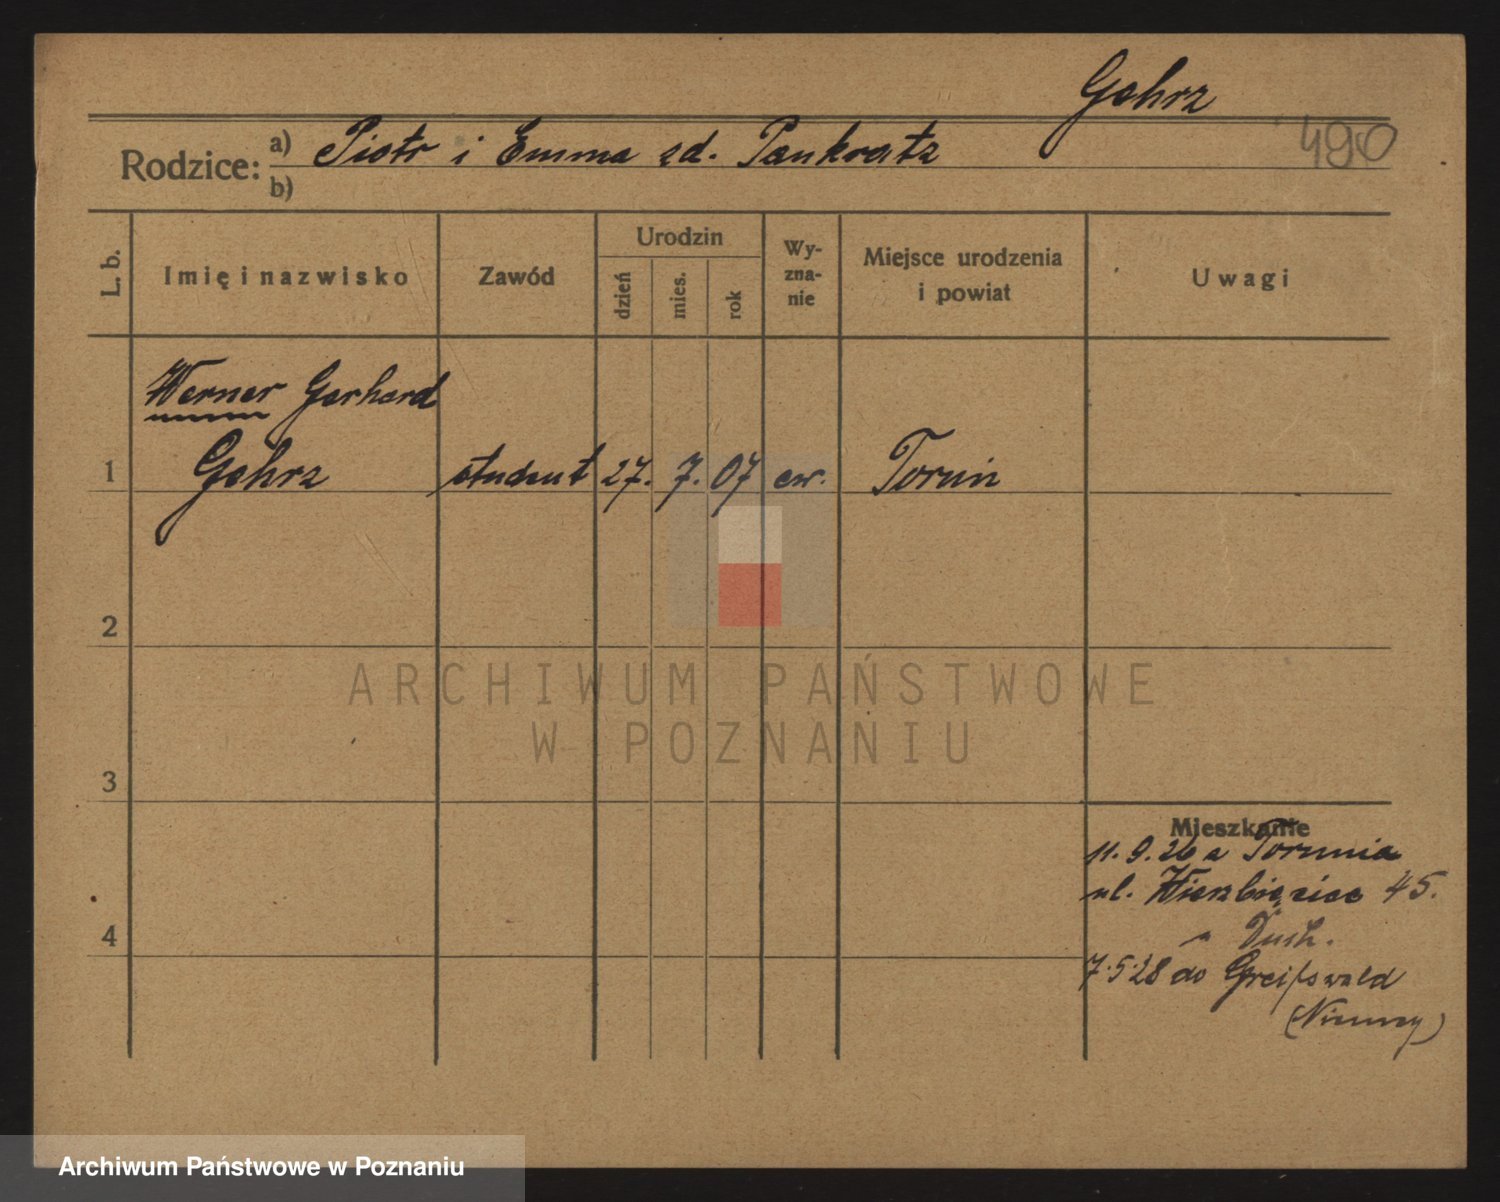 Gehrz
490
Rodzice: a) Piotr i Emma zd. Pankratz
b)
L. b. Imię i nazwisko Zawód Urodzin dzień mies. rok Wy-zna-nie Miejsce urodzenia i powiat Uwagi
Werner Gerhard
1 Gehrz student 27. 7. 07 ew. Toruń
2
3
4
Mieszkanie
11. 9. 26 z Torunia
ul. Wierzbięcice 45.
7.5.28 do Greifswald
(Niemcy)
ARCHIWUM PAŃSTWOWE
W POZNANIU
Archiwum Państwowe w Poznaniu